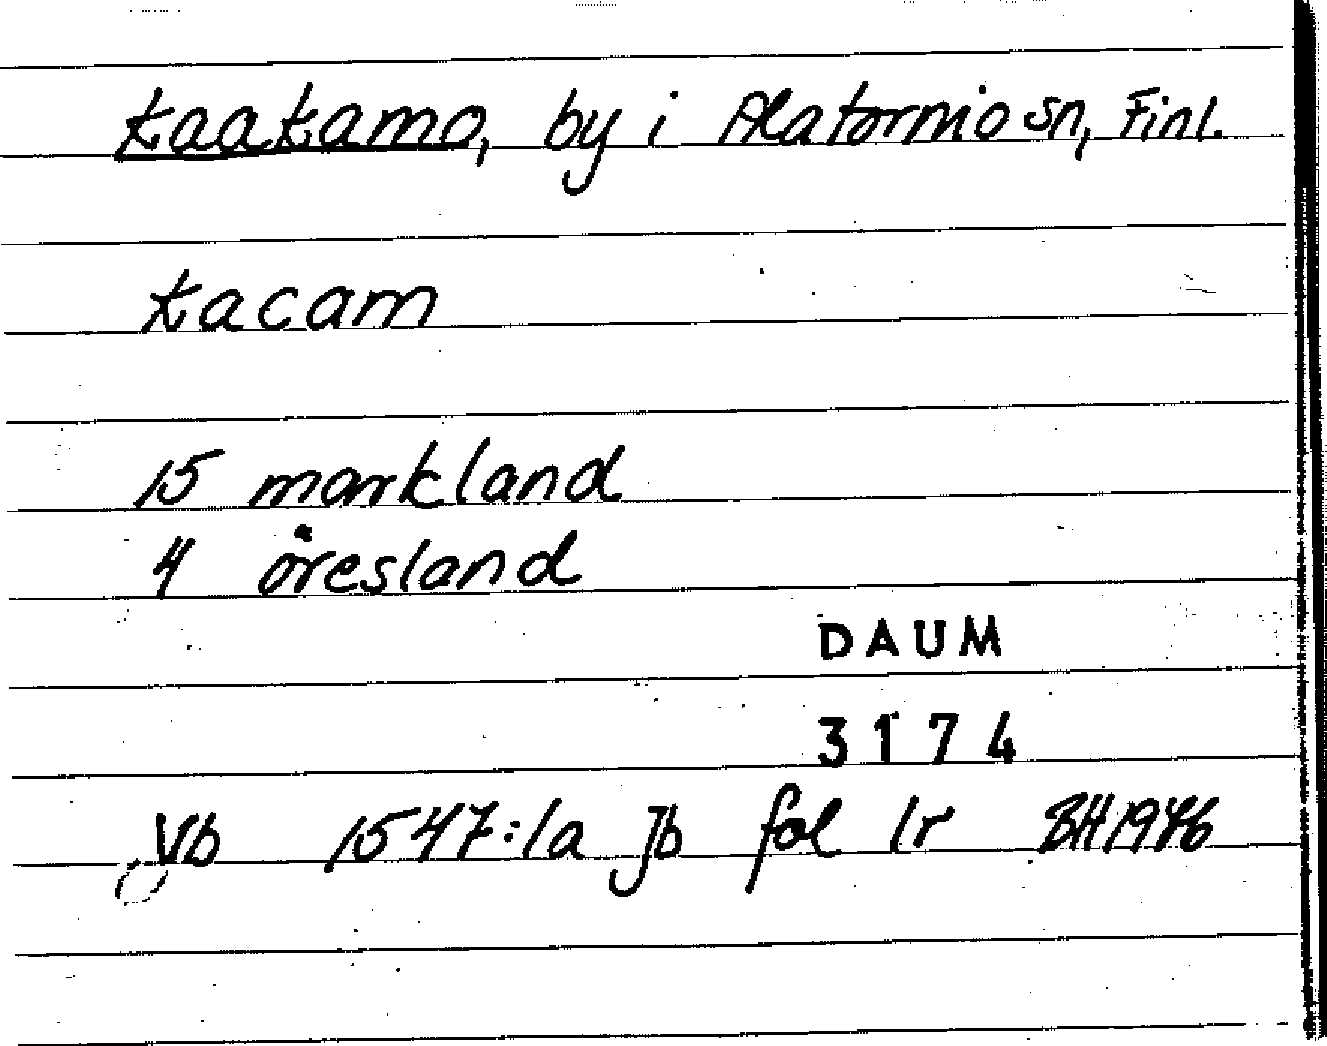 Kaakamo, by i Alatornio sn, Finl.
Kacam
15 markland
4 öresland
DAUM
3174
Vb 1547:1a Jb fol 1r BH 1976